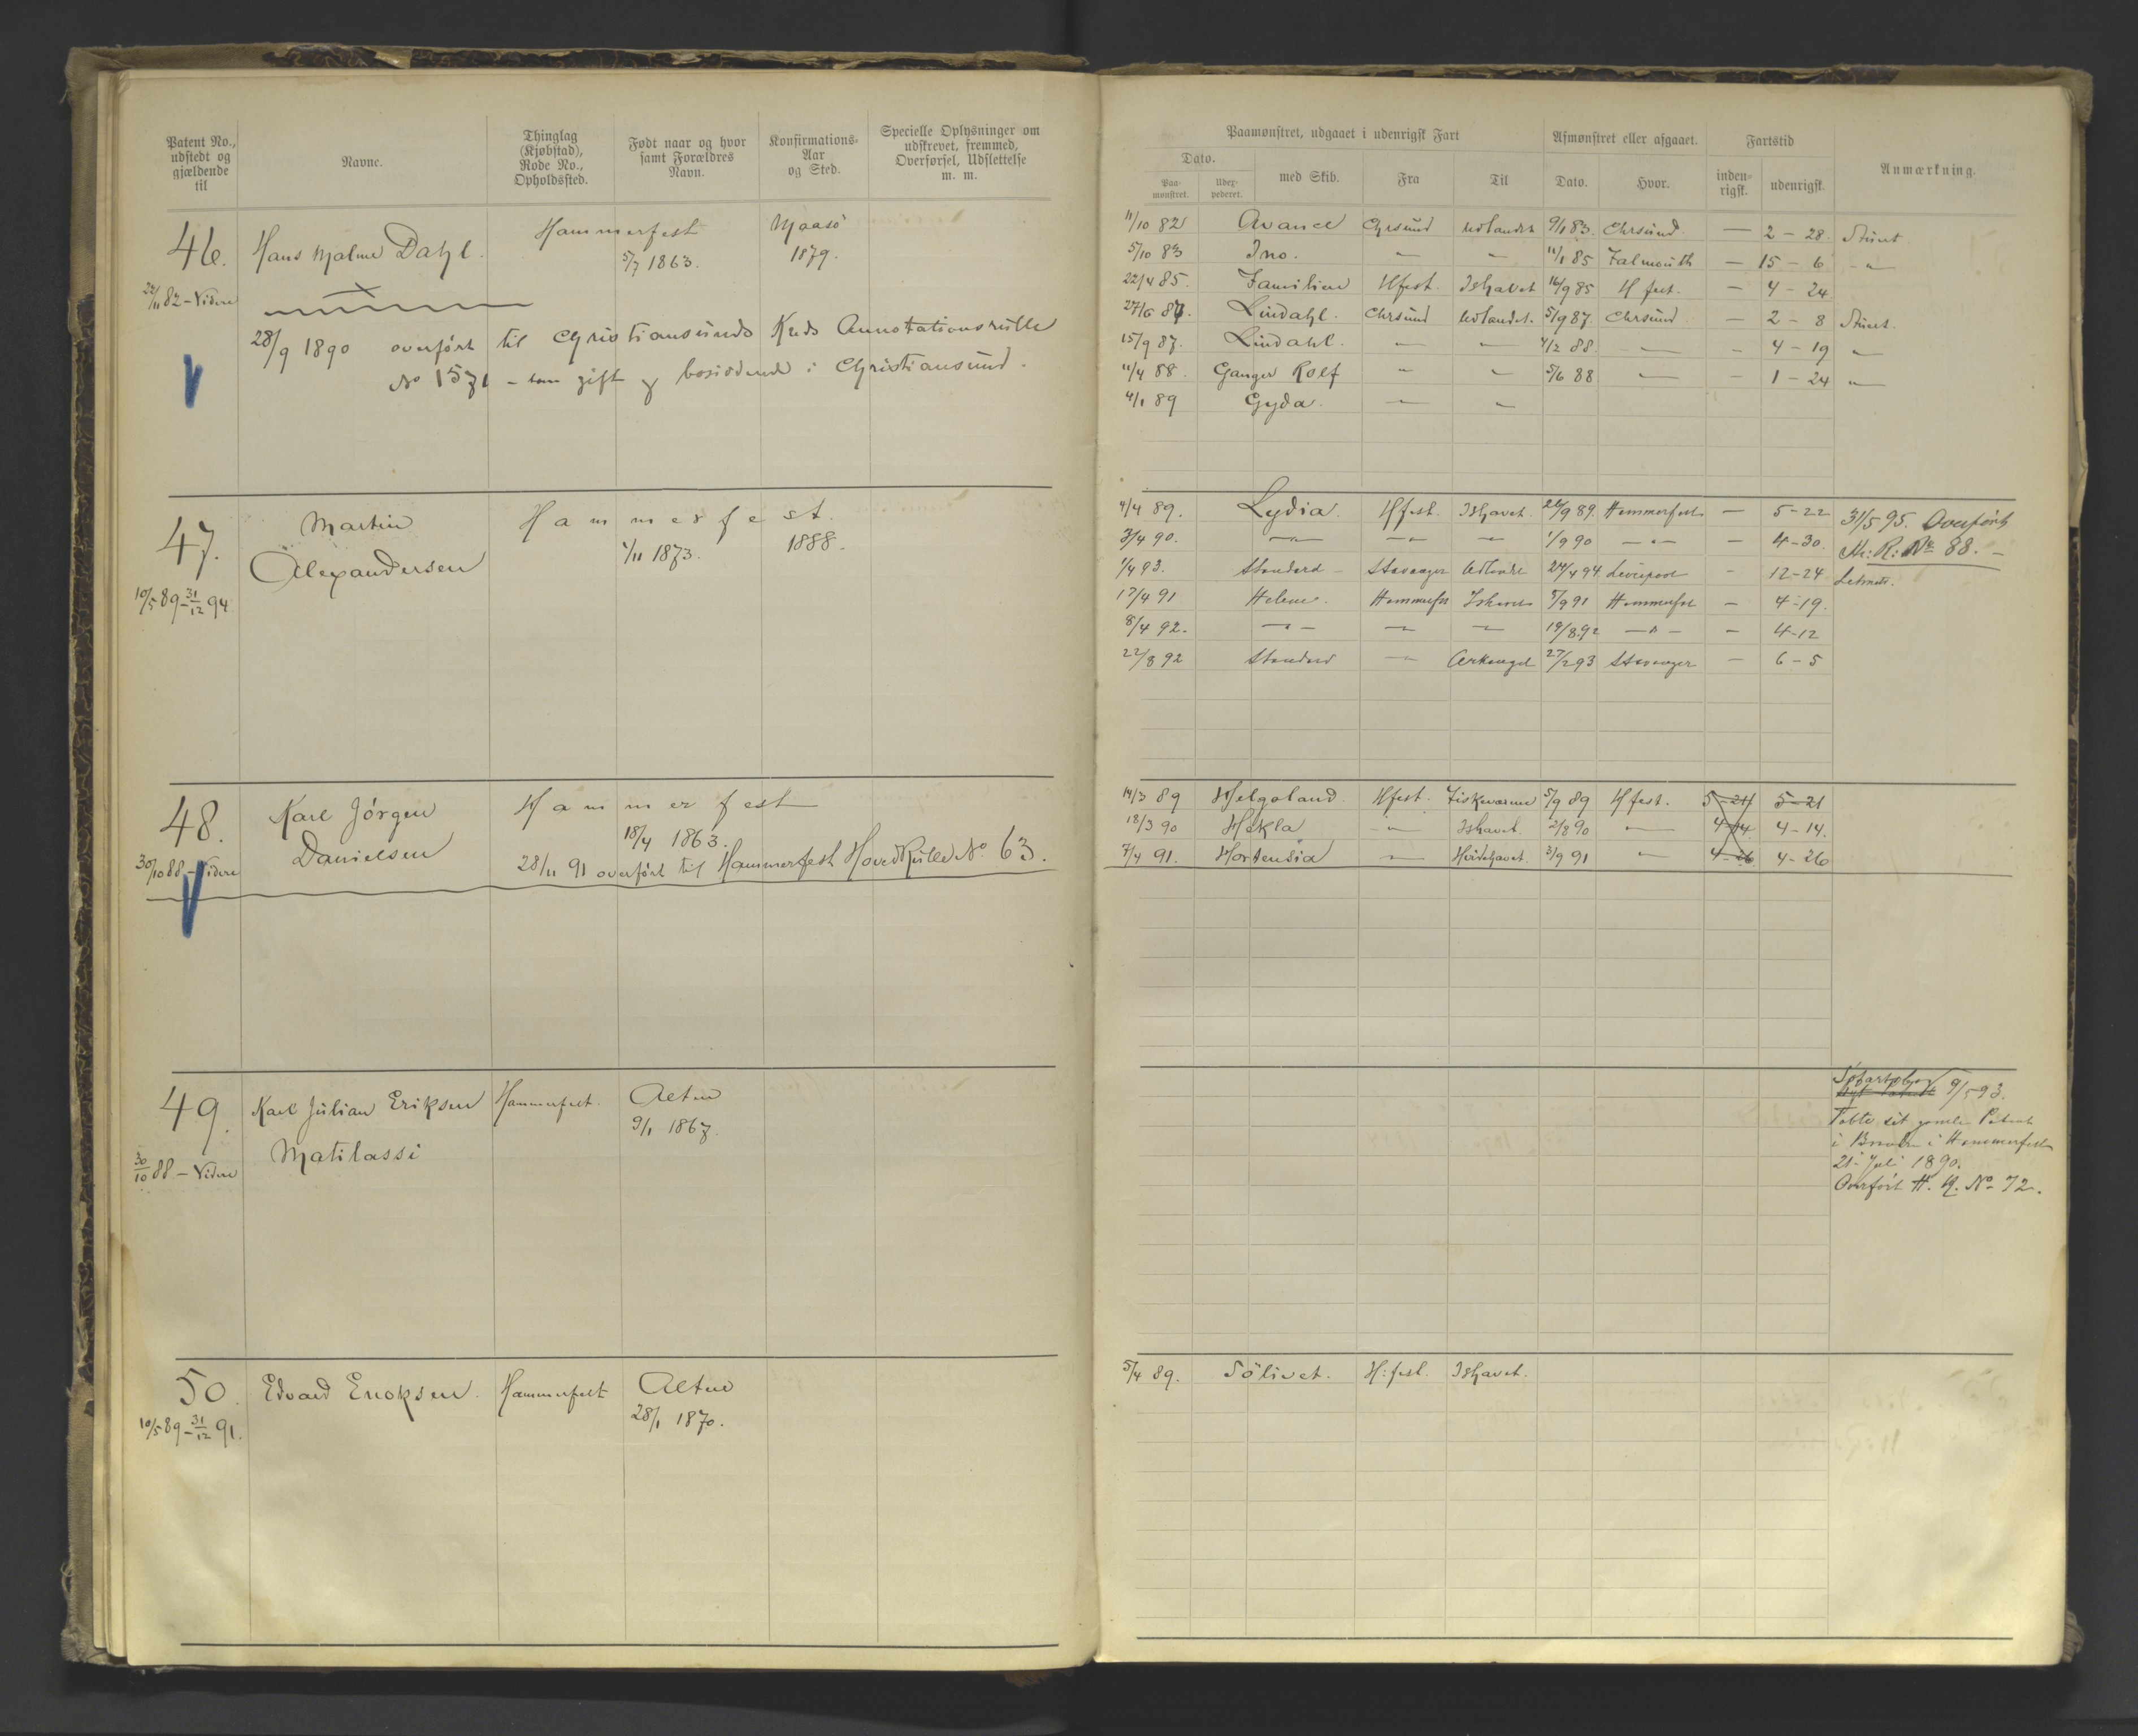 Patent No., udstedt og gjældende til
Navne.
Thinglag (Kjøbstad), Rode No., Opholdssted.
Født naar og hvor samt Forældres Navn.
Konfirmations-Aar og Sted.
Specielle Oplysninger om udskrevet, fremmed, Overførsel, Udslettelse m. m.
46. Hans Hjalmar Dahl. Hammerfest Maasö
5/7 1863. 1879.
22/11 82 – Videre
28/9 1890 overført til Christiansunds Kreds Annotationsrulle
No 1571 – som gift og bosiddende i Christiansund.
47. Martin Hammerfest.
Alexandersen 1/11 1873. 1888.
10/5 89 – 31/12 94
48. Karl Jörgen Hammerfest
Danielsen 18/4 1863.
30/10 88 – Videre 28/11 91 overført til Hammerfest HovedRulle No 63.
49. Karl Julian Eriksen Hammerfest. Alten
Matilassi 9/1 1867
30/10 88 – Videre
50. Edvard Enoksen. Hammerfest Alten
10/5 89 – 31/12 91. 28/1 1870.
Paamønstret, udgaaet i udenrigsk Fart
Afmønstret eller afgaaet.
Fartstid
Anmærkning.
Dato.
Paa-mønstret.
Udex-pederet.
med Skib.
Fra
Til
Dato.
Hvor.
inden-rigsk.
udenrigsk.
11/10 82 Avance Chrsund Udlandet 9/1 83. Chrsund. — 2 – 28.
5/10 83 Ino. — — 11/1 85 Falmouth — 15 – 6 – " –
22/4 85. Familien Hfest. Ishavet 16/9 85 H fest. – 4 – 24
27/6 87. Lindahl. Chrsund Udlandet. 5/9 87. Chrsund – 2 – 8
15/9 87. Lindahl. — — 4/2 88. — – 4 – 19 – " –
11/4 88. Ganger Rolf – " – – " – 5/6 88 — – 1 – 24 – " –
4/1 89 Gyda. — –
4/4 89. Lydia. Hfest. Ishavet. 26/9 89. Hammerfest – 5 – 22 31/5 95. Overført
3/4 90. – " – – " – — 1/9 90 – " – – 4 – 30. No 88. –
1/4 93. Standard – Stavanger 24/4 94. Liverpool – 12 – 24
17/4 91 Helene. Hammerfest Ishavet 5/9 91 Hammerfest – 4 – 19.
8/4 92. – " – — — 19/8 92 – " – – 4 – 12
22/8 92 Standard — Arkangel 27/2 93 Stavanger – 6 – 5
14/3 89 Helgoland. Hfest. Fiskeværene 5/9 89 H fest. 5 – 21 5 – 21
18/3 90 Hekla – " – Ishavet. 2/8 90 – " – 4 – 14 4 – 14.
7/4 91. Hortensia — Hvidehavet. 3/9 91 – " – 4 – 26 4 – 26
9/5 93.
Tabte sit gamle Patent
i Branden i Hammerfest
21' Juli 1890.
Overført H. R. No 72.
5/4 89. Sölivet. H:fest. Ishavet.